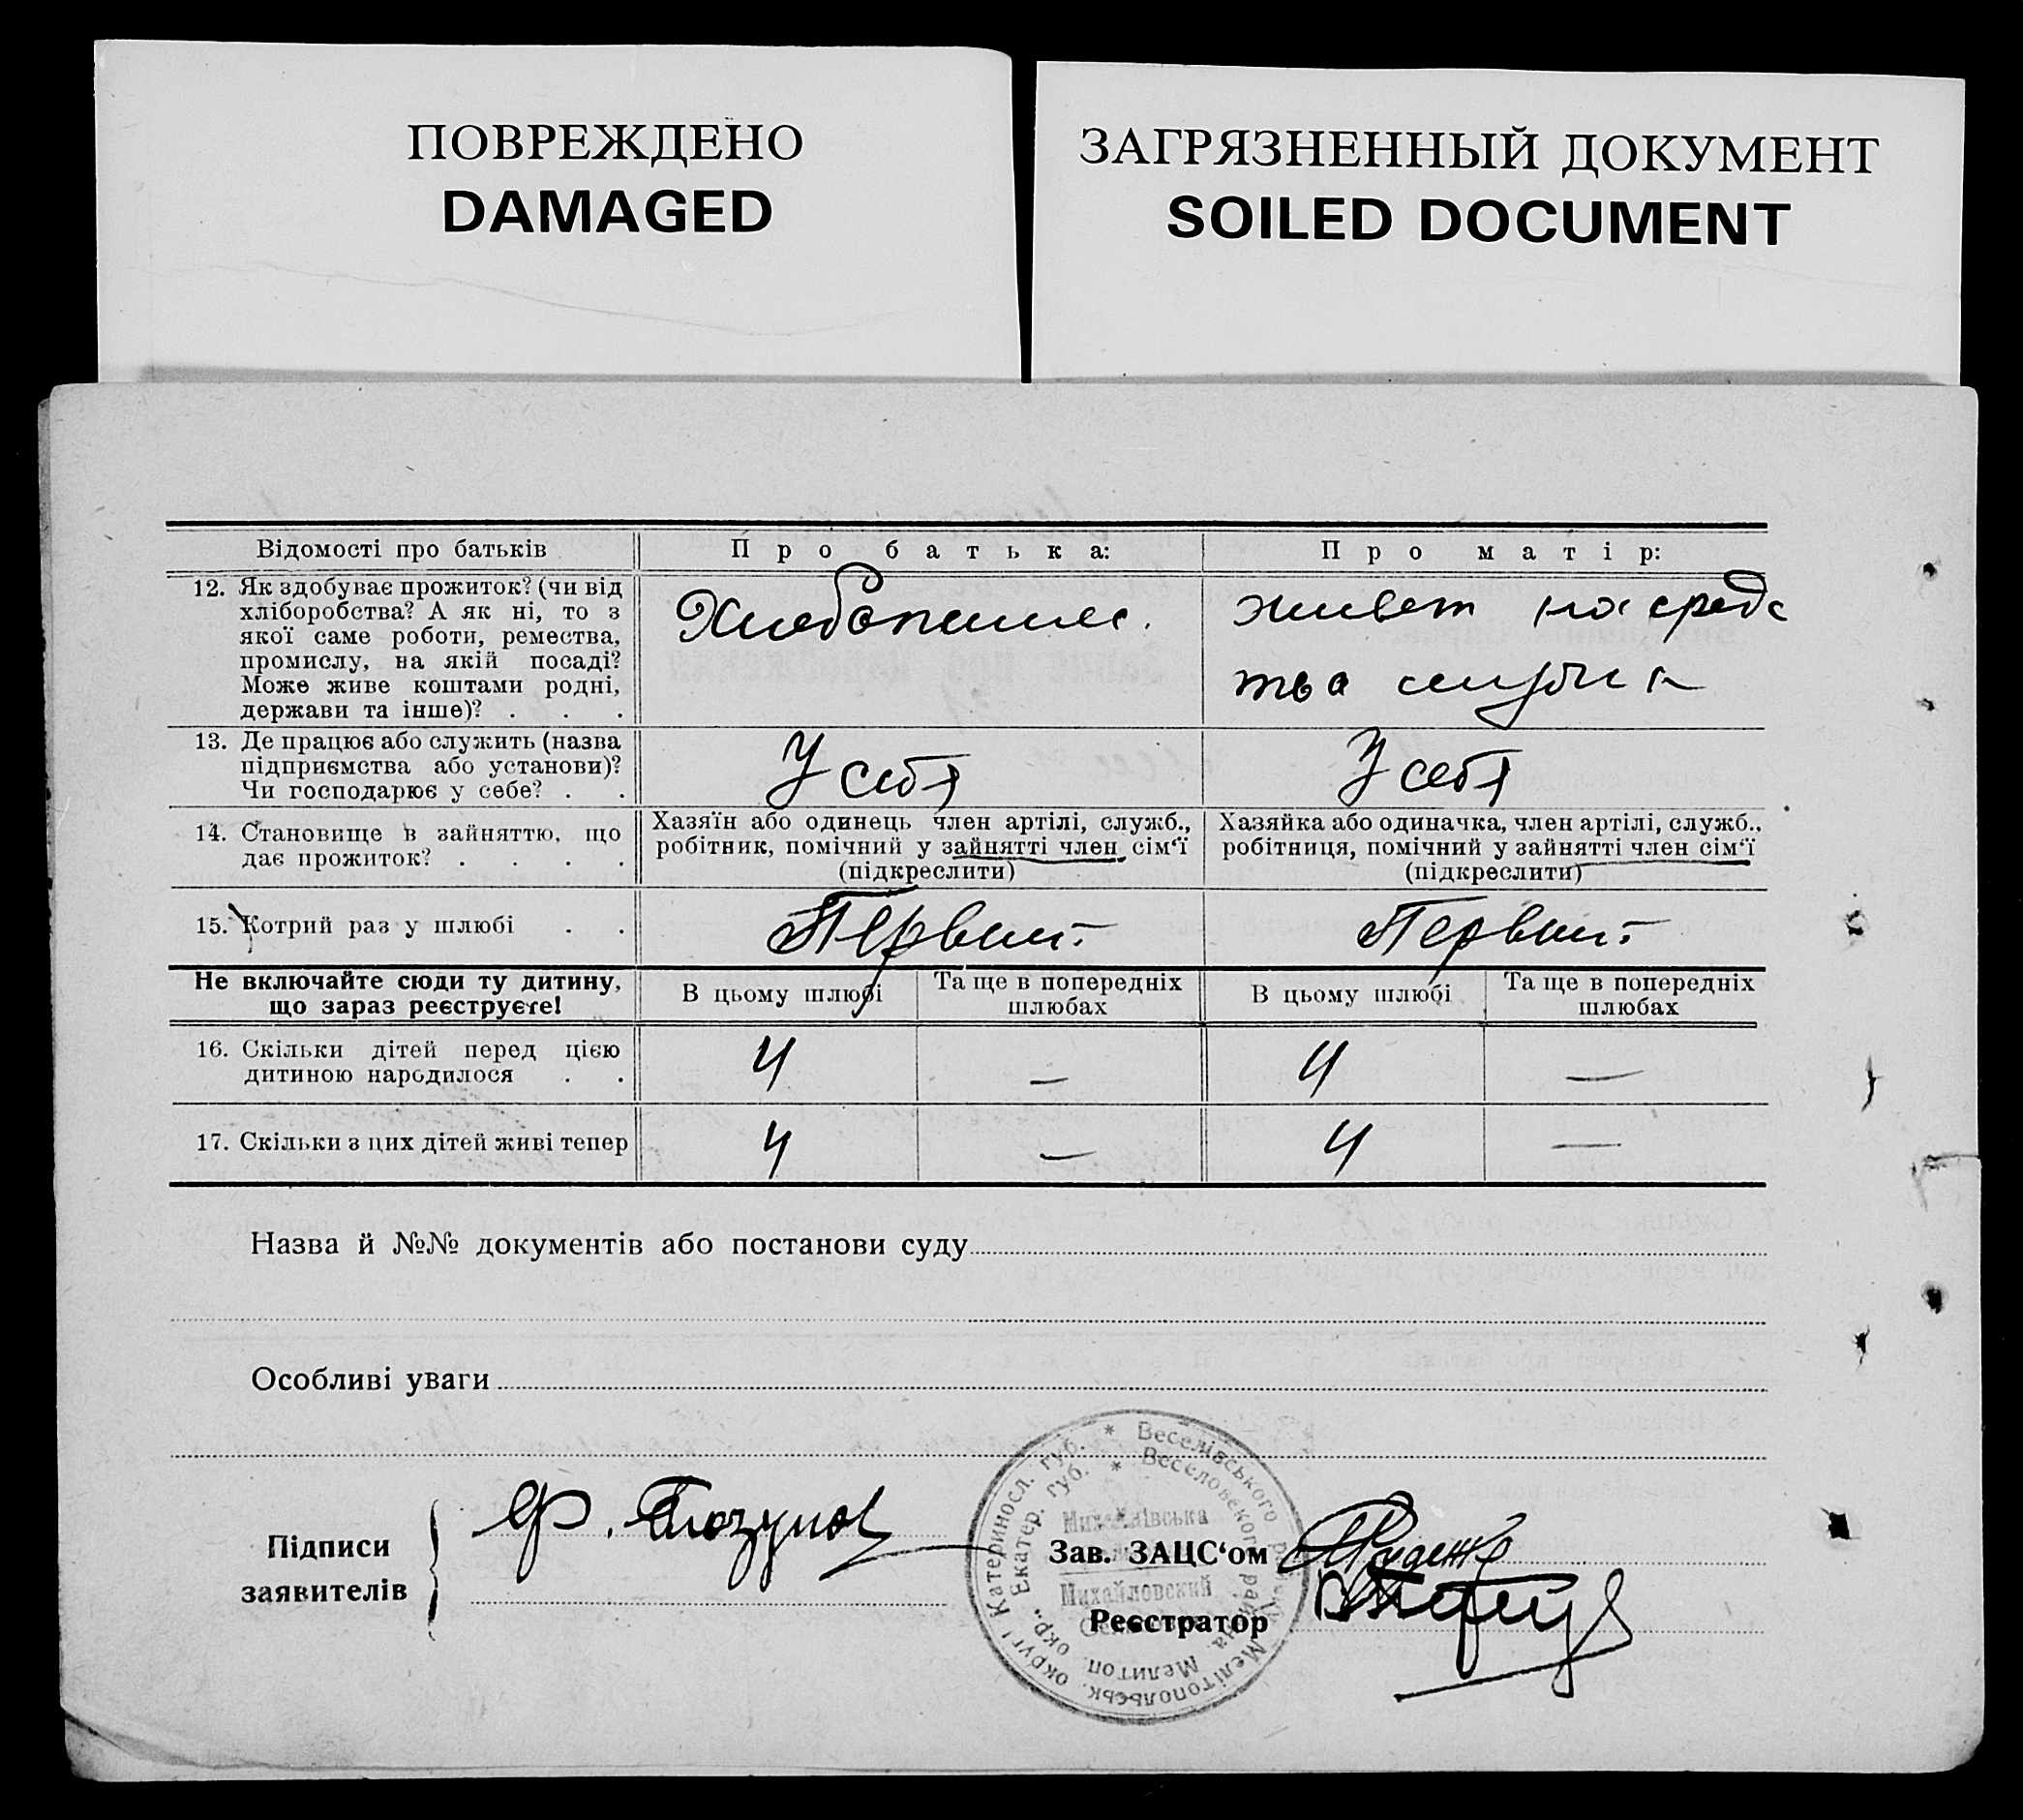 ПОВРЕЖДЕНО
DAMAGED
ЗАГРЯЗНЕННЫЙ ДОКУМЕНТ
SOILED DOCUMENT
Відомості про батьків
Про батька:
Про матір:
12. Як здобуває прожиток? (чи від
хліборобства? А як ні, то з
якої саме роботи, ремества,
промислу, на якій посаді?
Може живе коштами родні,
держави та інше)? . . .
живет на средс
тва мужа
13. Де працює або служить (назва
підприємства або установи)?
Чи господарює у себе? . .
У себя
У себя
14. Становище в зайняттю, що
дає прожиток? . . . .
Хазяїн або одинець член артілі, служб.,
робітник, помічний у зайнятті член сім'ї
(підкреслити)
Хазяйка або одиначка, член артілі, служб.,
робітниця, помічний у зайнятті член сім'ї
(підкреслити)
15. Котрий раз у шлюбі . .
Первый
Первый
Не включайте сюди ту дитину,
що зараз реєструєте!
В цьому шлюбі
Та ще в попередніх
шлюбах
В цьому шлюбі
Та ще в попередніх
шлюбах
16. Скільки дітей перед цією
дитиною народилося . .
4
—
4
—
17. Скільки з цих дітей живі тепер
4
—
4
—
Назва й №№ документів або постанови суду
Особливі уваги
Підписи
заявителів
Ф.
Зав. ЗАЦС'ом
Реєстратор
* Веселівського району Мелітопольськ. округі Катериносл. губ.
* Веселовского района Мелитоп. окр. Екатер. губ.
Михайлівська
Михайловский